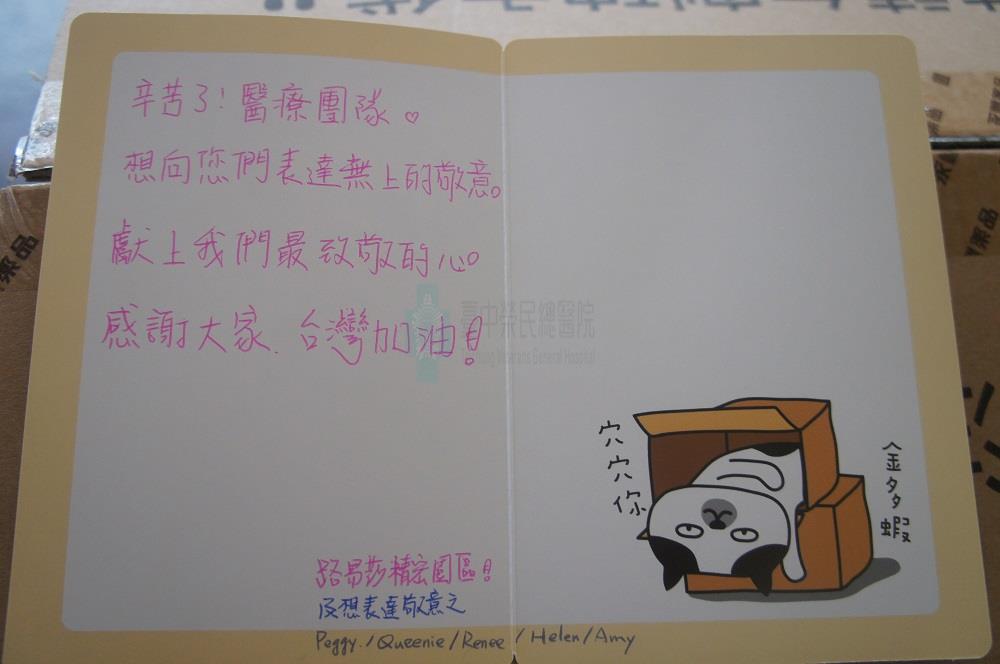 辛苦了!醫療團隊。♡
想向您們表達無上的敬意。
獻上我們最致敬的心。
感謝大家.台灣加油!
臺中榮民總醫院
Taichung Veterans General Hospital
穴穴你
金多蝦
路易莎精密園區!
及想表達敬意之
Peggy./Queenie/Renee/Helen/Amy